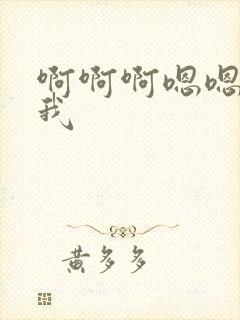 啊啊啊嗯嗯
我
黄多多